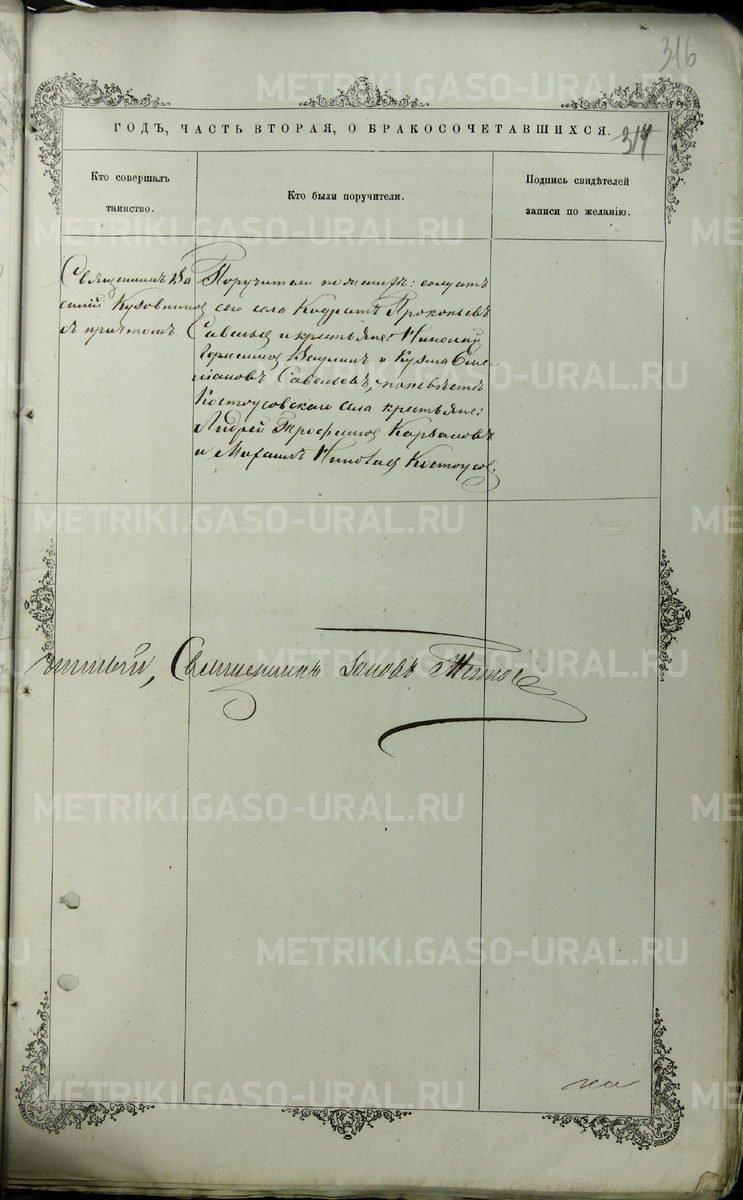 316
ГОДЪ, ЧАСТЬ ВТОРАЯ, О БРАКОСОЧЕТАВШИХСЯ.
314
Кто совершалъ
таинство.
Кто были поручители.
Подпись свидѣтелей
записи по желанію.
Священникъ Ва
силій
съ причтомъ
Поручители по женихѣ: солдатъ
сего села Кодратъ Прокопьевъ
Савельевъ и крестьяне: Николай
Ваулинъ и Кузма
Савельевъ, по невѣстѣ
Костоусовскаго села крестьяне:
Андрей Трофимовъ
и Михаилъ Костоусовъ.
Священникъ Іаковъ
METRIKI.GASO-URAL.RU